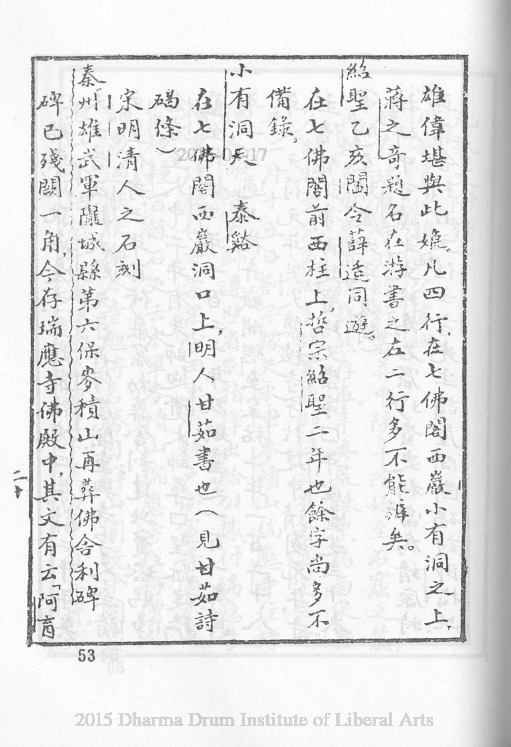 雄偉堪與此媲。凡四行,在七佛閣西巖小有洞之上,
蔣之奇題名在游書之左二行多不能辨矣。
紹聖乙亥閿令薛造同遊。
在七佛閣前西柱上,哲宗紹聖二年也餘字尚多不
備錄。
小有洞天 泰谿
在七佛閣西巖洞口上,明人甘茹書也(見甘茹詩
碣條)
宋明清人之石刻
秦州雄武軍隴城縣第六保麥積山再葬佛舍利碑
碑已殘闕一角,今存瑞應寺佛殿中,其文有云「阿育
二十
53
2015 Dharma Drum Institute of Liberal Arts